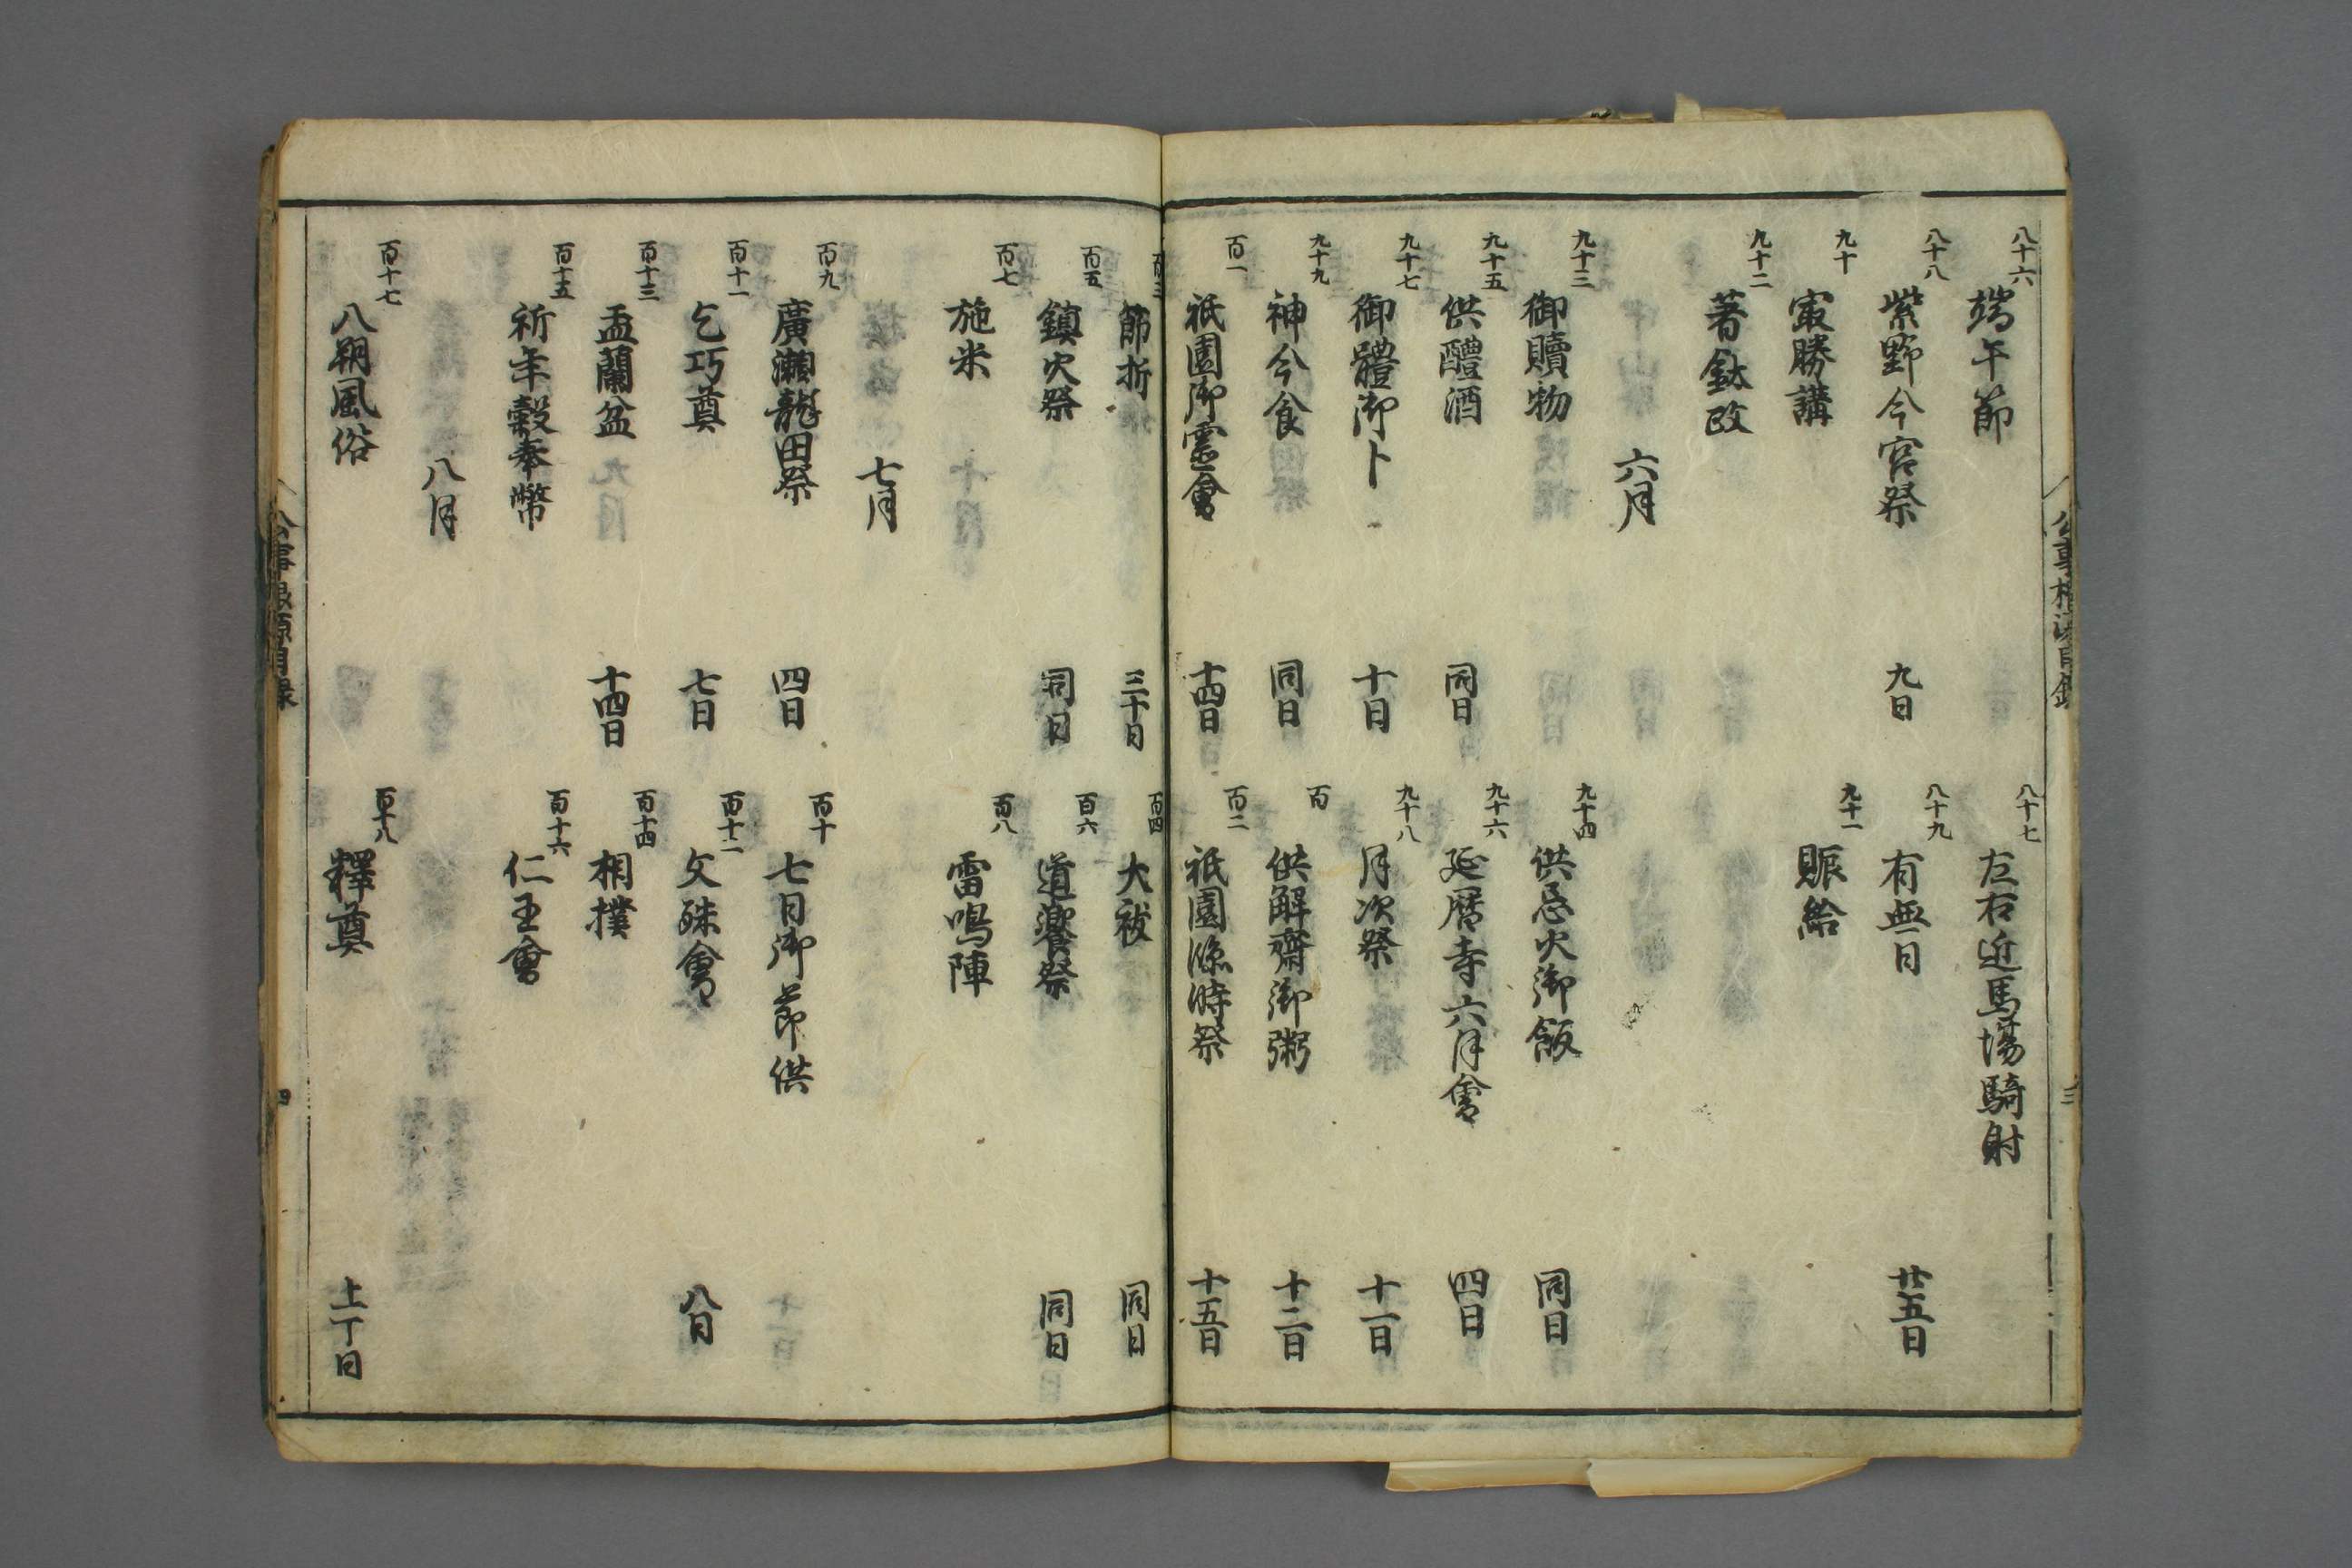 八十六 端午節
八十七 左右近馬塲騎射
八十八 紫野今宮祭 九日
八十九 有無日 廿五日
九十 冣勝講
九十一 賑給
九十二 著鈦政
六月
九十三 御贖物
九十四 供忌火御飯 同日
九十五 供醴酒 同日
九十六 延曆寺六月會 四日
九十七 御體御卜 十日
九十八 月次祭 十一日
九十九 神今食 同日
百 供解齋御粥 十二日
百一 祇園御靈會 十四日
百二 祇園臨時祭 十五日
百三 節折 三十日
百四 大祓 同日
百五 鎮火祭 同日
百六 道饗祭 同日
百七 施米
百八 雷鳴陣
七月
百九 廣瀬龍田祭 四日
百十 七日御節供
百十一 乞巧奠 七日
百十二 文殊會 八日
百十三 盂蘭盆 十四日
百十四 相撲
百十五 祈年穀奉幣
百十六 仁王會
八月
百十七 八朔風俗
百十八 釋奠 上丁日
公事根源目錄 三
公事根源目録 四